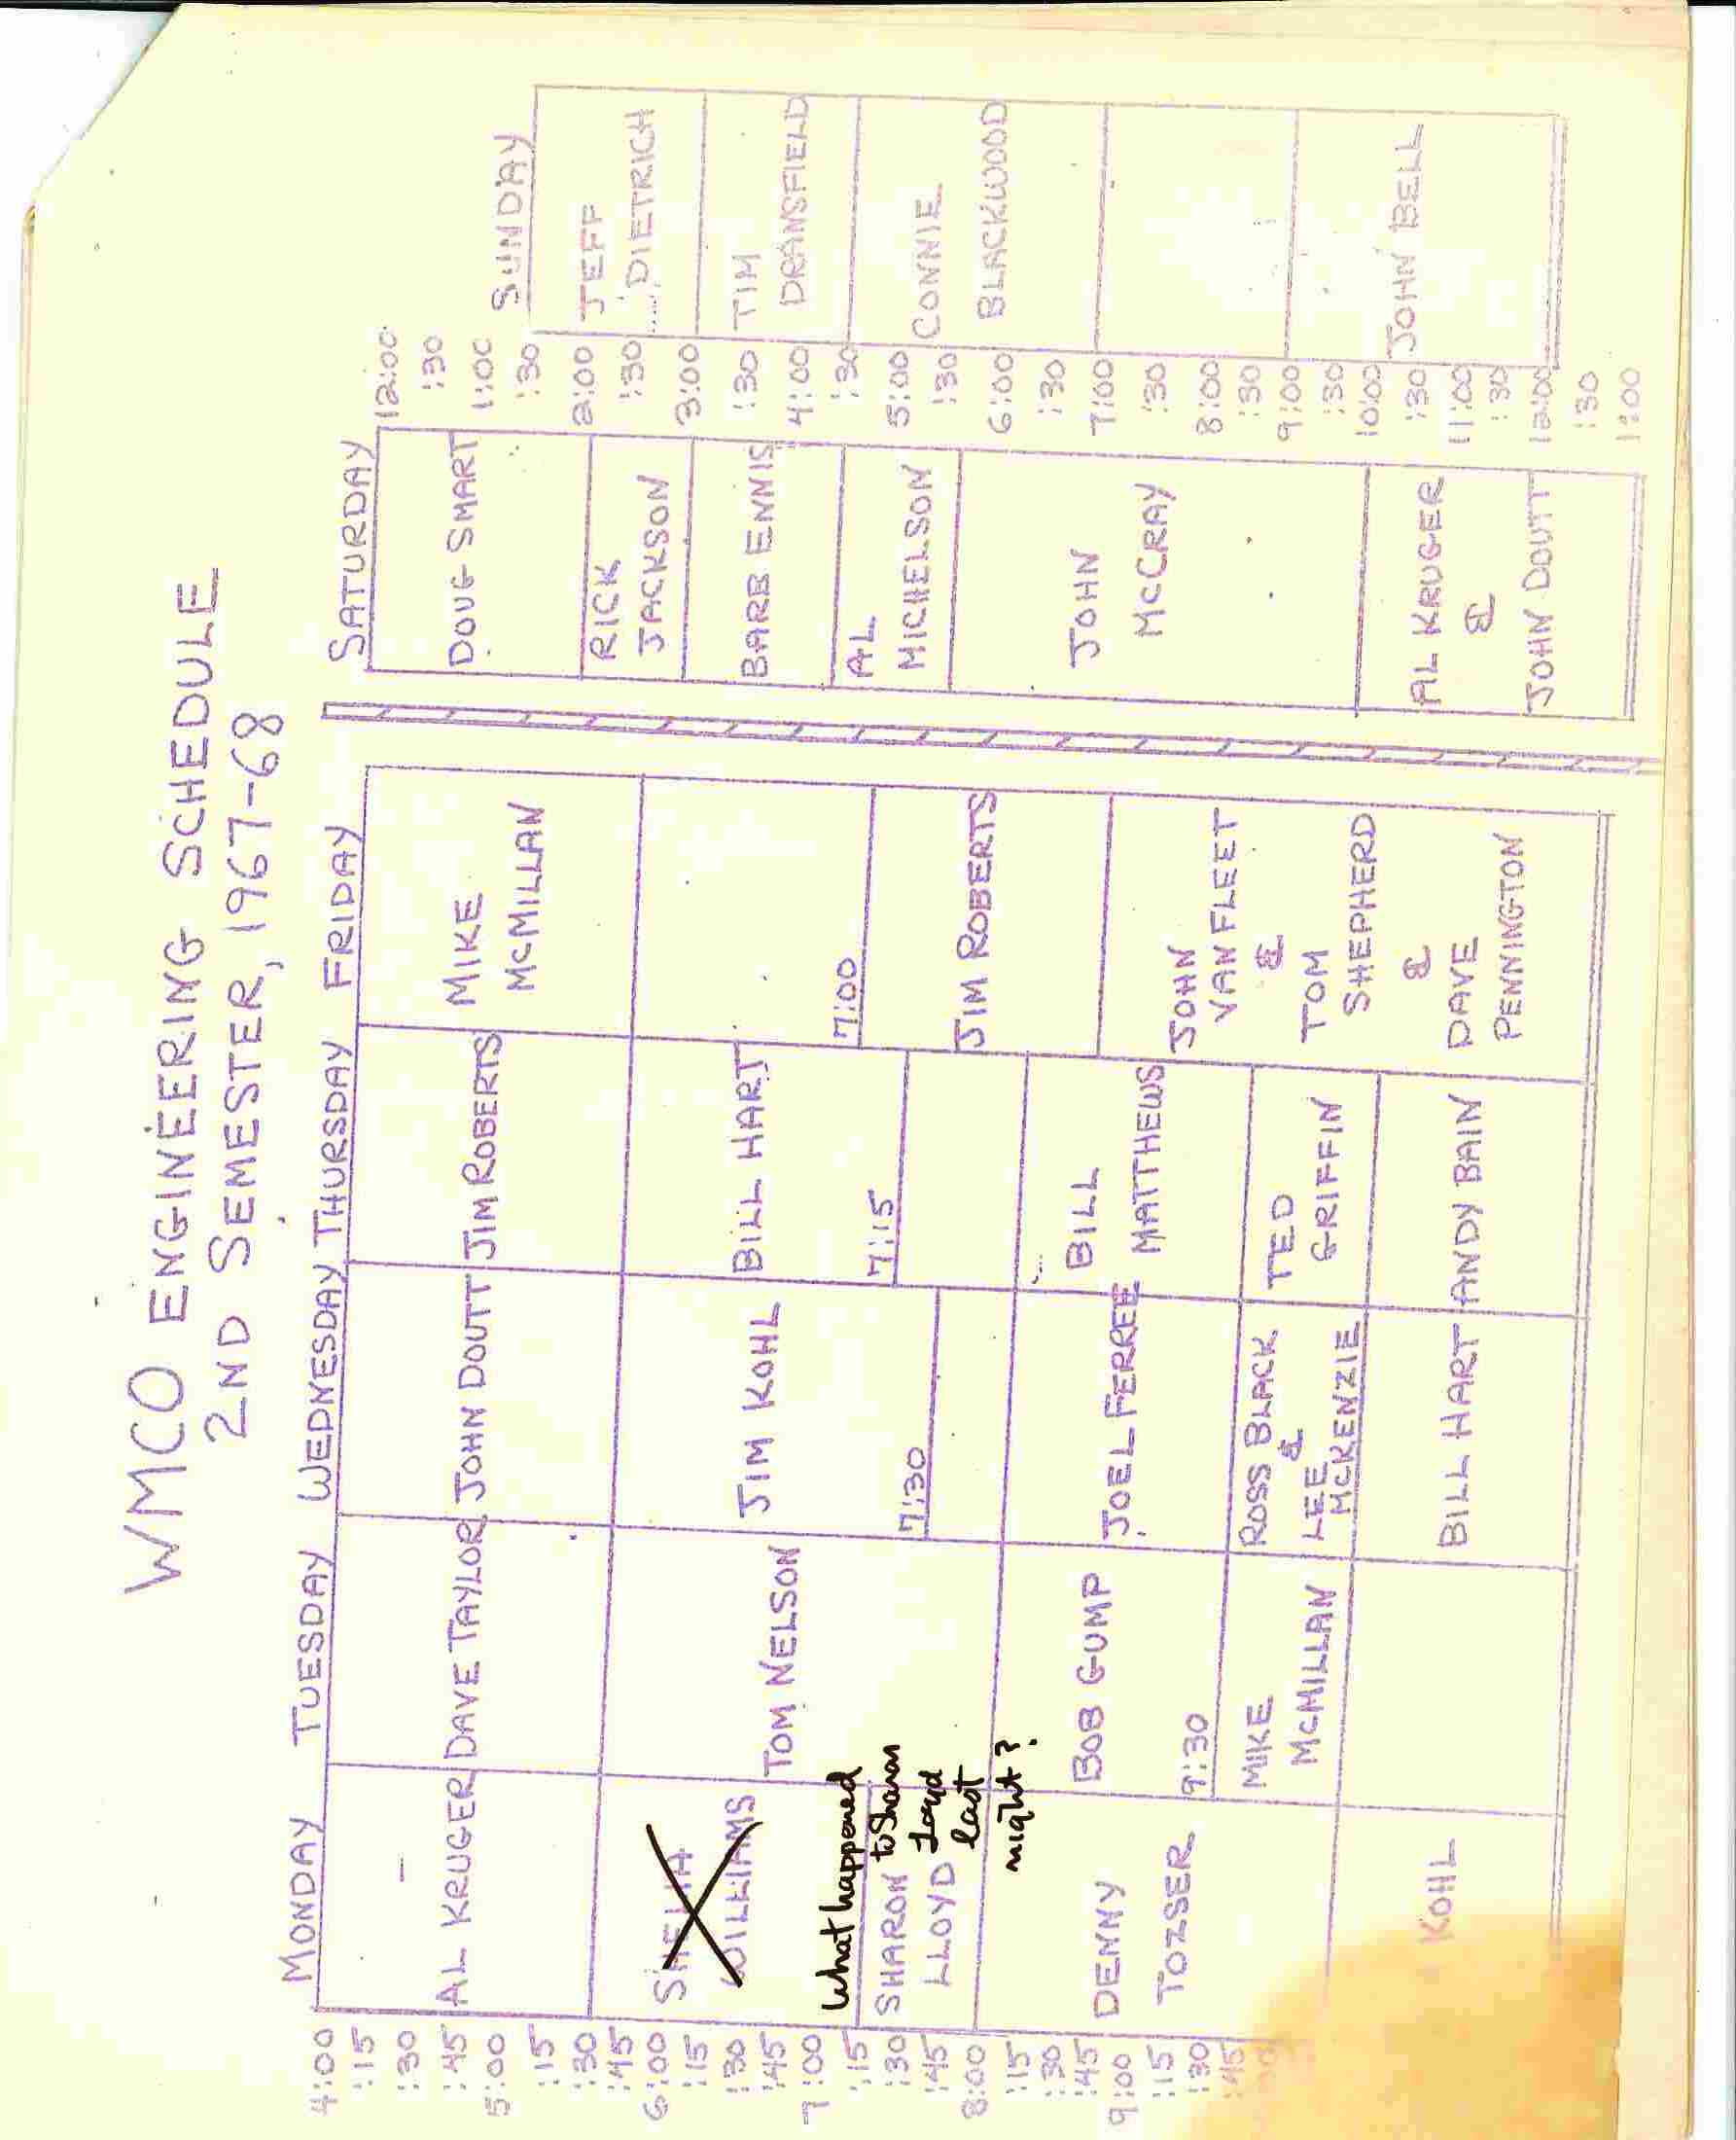 WMCO ENGINEERING SCHEDULE
2ND SEMESTER, 1967-68
MONDAY TUESDAY WEDNESDAY THURSDAY FRIDAY SATURDAY SUNDAY
4:00
:15
:30
:45
5:00
:15
:30
:45
6:00
:15
:30
:45
7:00
:15
:30
:45
8:00
:15
:30
:45
9:00
:15
:30
:45
AL KRUGER
WILLIAMS
What happened
to Sharon
Loyd
last
night?
SHARON
LLOYD
DENNY
TOZSER
KOHL
DAVE TAYLOR
TOM NELSON
BOB GUMP
9:30
MIKE
MCMILLAN
JOHN DOUTT
JIM KOHL
7:30
JOEL FERREE
ROSS BLACK
&
LEE
MCKENZIE
BILL HART
JIM ROBERTS
BILL HART
7:15
BILL
MATTHEWS
TED
GRIFFIN
ANDY BAIN
MIKE
MCMILLAN
7:00
JIM ROBERTS
JOHN
VAN FLEET
&
TOM
SHEPHERD
&
DAVE
PENNINGTON
DOUG SMART
RICK
JACKSON
BARB ENNIS
AL
MICHELSON
JOHN
MCCRAY
AL KRUGER
&
JOHN DOUTT
12:00
:30
1:00
:30
2:00
:30
3:00
:30
4:00
:30
5:00
:30
6:00
:30
7:00
:30
8:00
:30
9:00
:30
10:00
:30
11:00
:30
12:00
:30
1:00
JEFF
DIETRICH
TIM
DRANSFIELD
CONNIE
BLACKWOOD
JOHN BELL